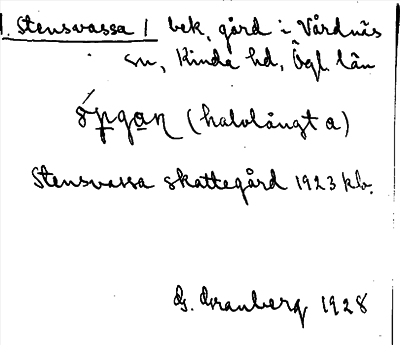 1. Stensvassa / bek. gård i Vårdnäs
sn, Kinda hd, Ögl. län
(halvlångt a)
Stensvassa skattegård 1923 kb.
G. Granberg 1928